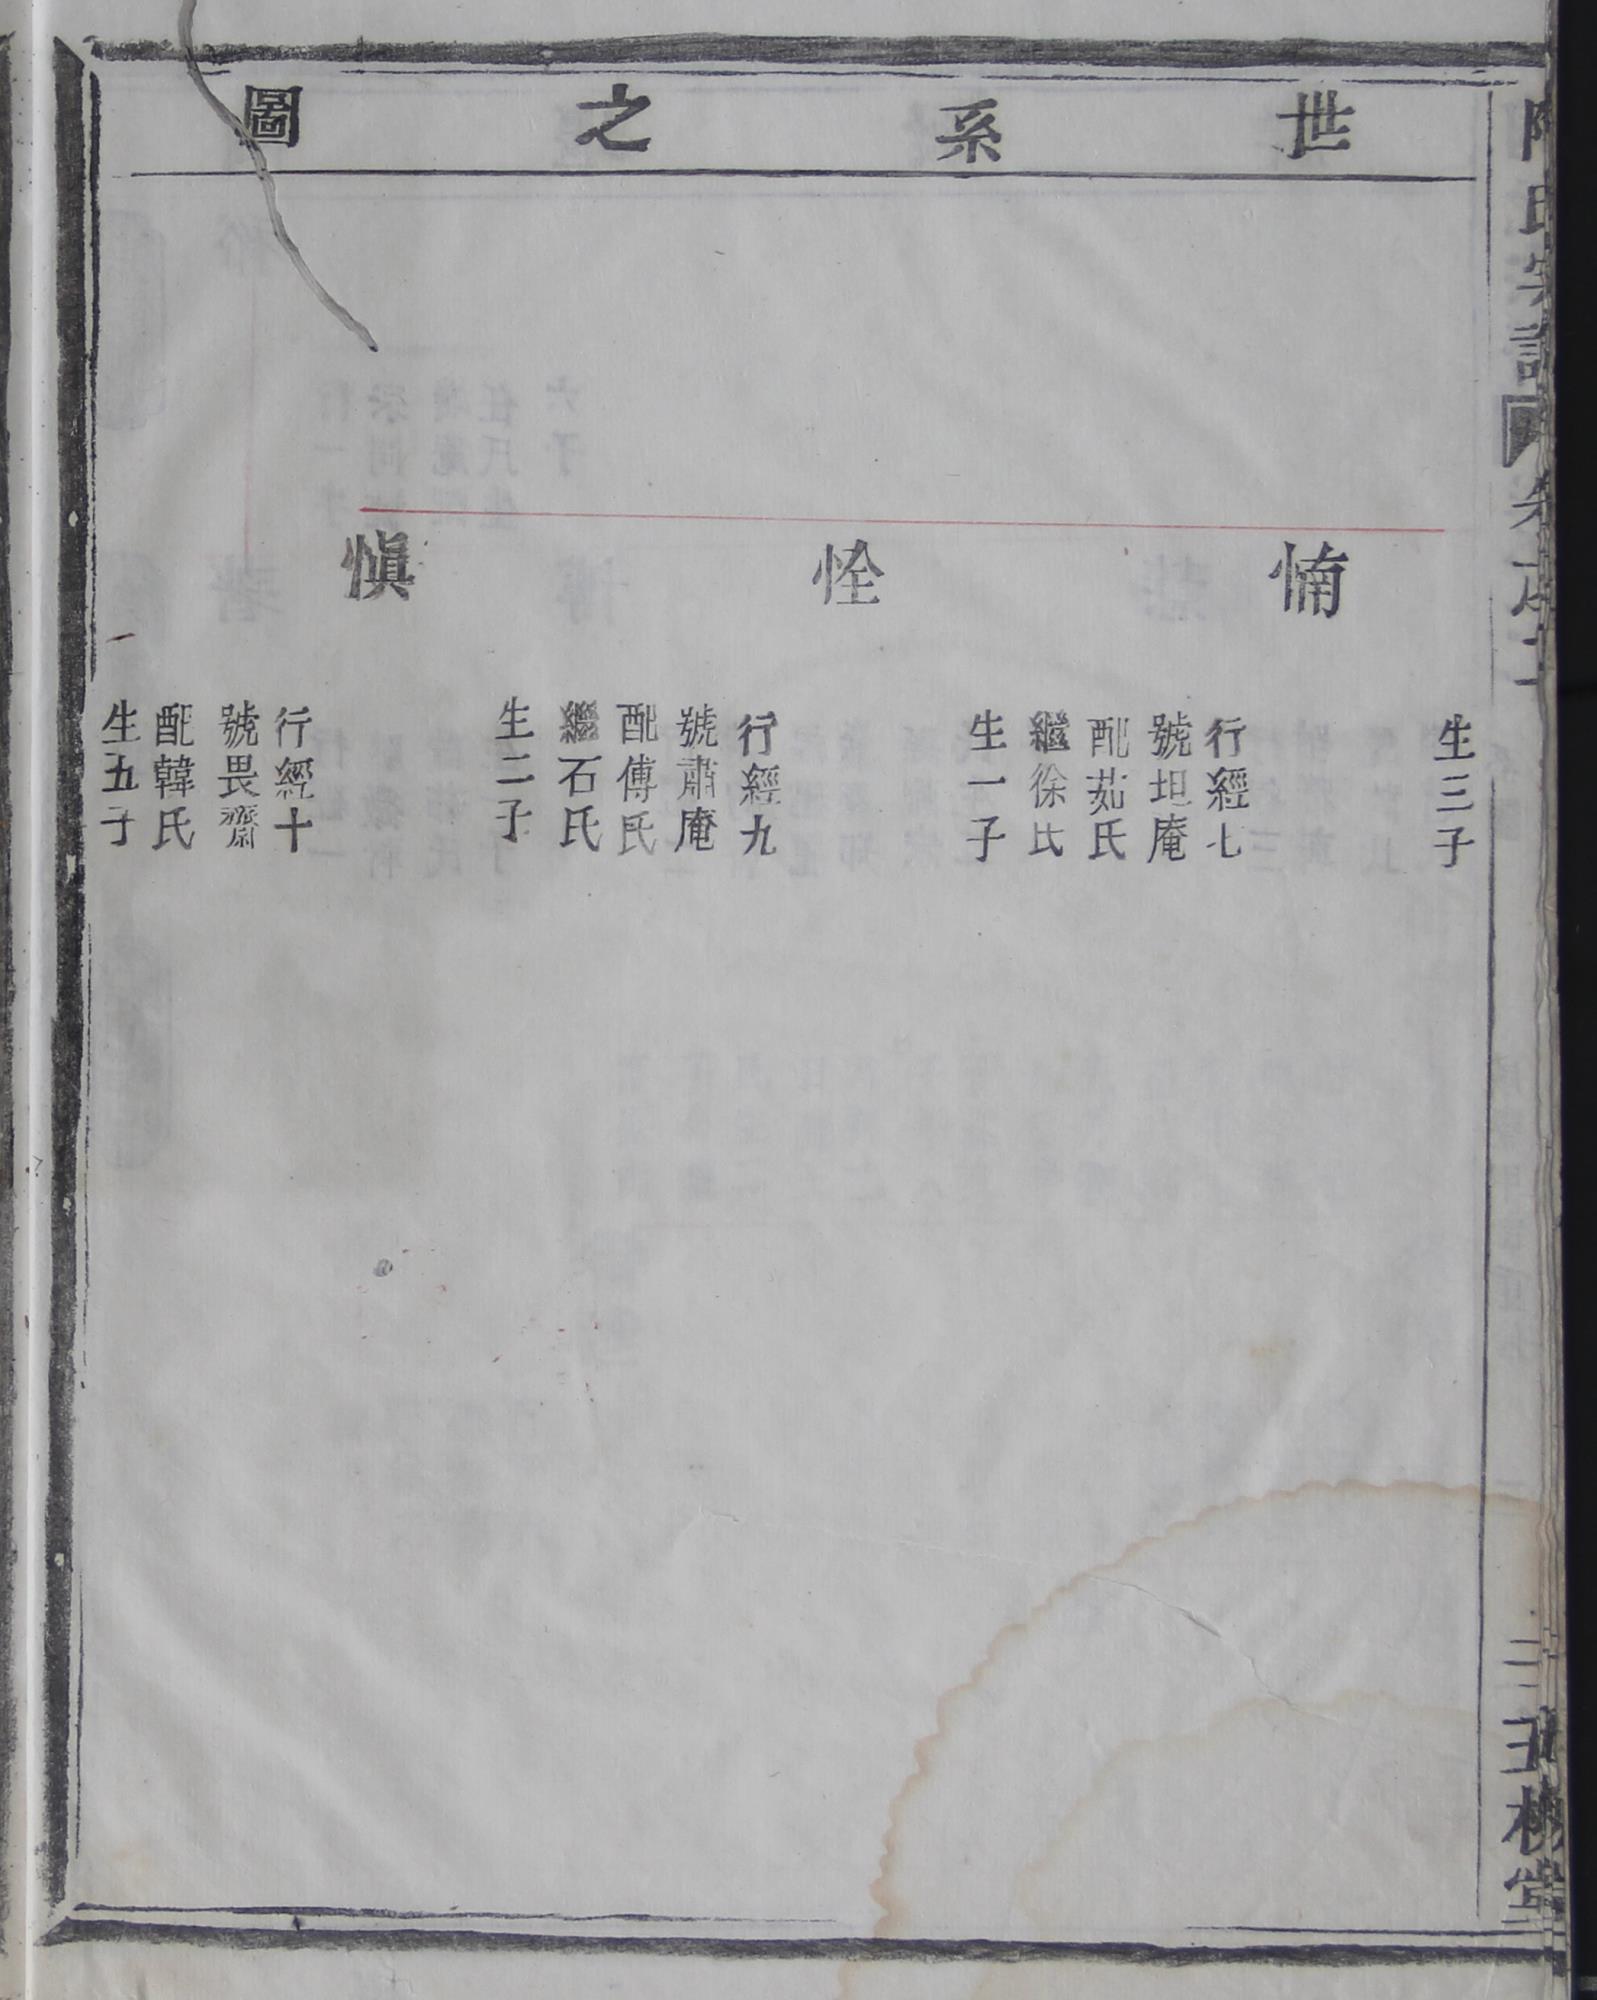 世系之圖
生三子
㥓
行經七
號坦庵
配茹氏
繼徐氏
生一子
恮
行經九
號肅庵
配傅氏
繼石氏
生二子
愼
行經十
號畏齋
配韓氏
生五子